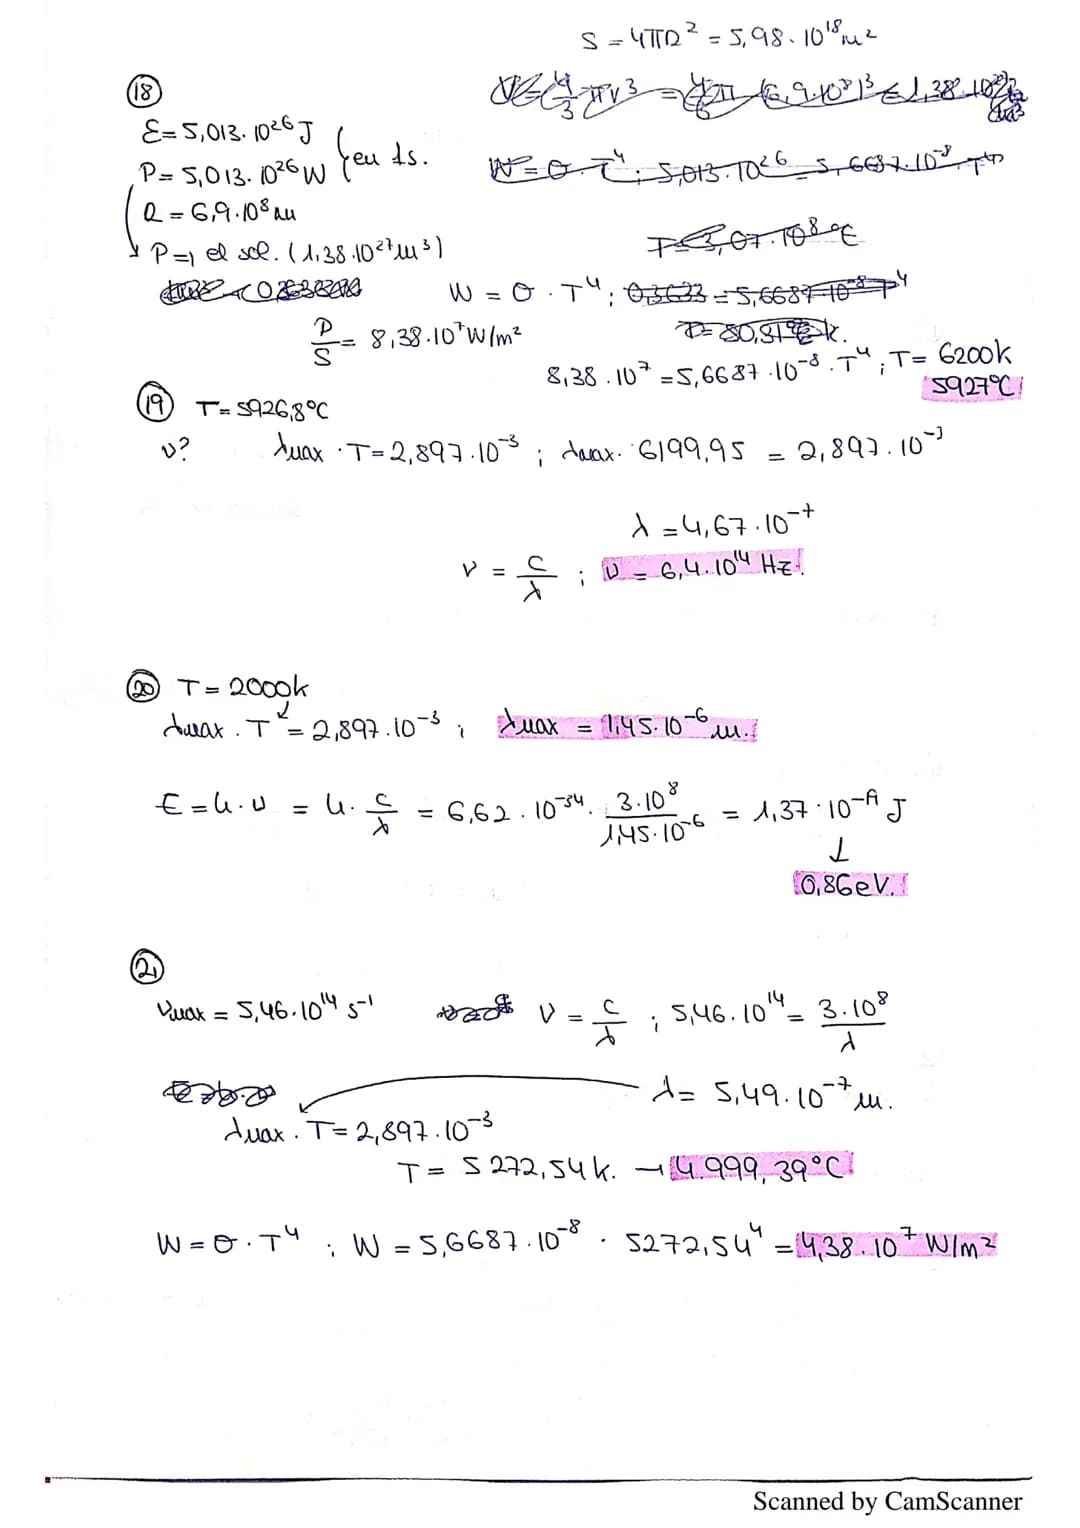 S = 4πR² = 5,98 · 10¹⁸ m²
18
E = 5,013 · 10²⁶ J
P = 5,013 · 10²⁶ W } en 1s.
R = 6,9 · 10⁸ m
P ⇒ el sol. (1,38 · 10²⁷ m³)
W = σ · T⁴ ; 5,013 · 10²⁶ = 5,6687 · 10⁻⁸ · T⁴
T = 3,07 · 10⁸ ºC
W = σ · T⁴ ; 0,3633 = 5,6687 · 10⁻⁸ · T⁴
P/S = 8,38 · 10⁷ W/m²
8,38 · 10⁷ = 5,6687 · 10⁻⁸ · T⁴ ; T = 6200 k
5927ºC
19 T = 5926,8ºC
ν? λmax · T = 2,897 · 10⁻³ ; λmax · 6199,95 = 2,897 · 10⁻³
λ = 4,67 · 10⁻⁷
ν = c/λ ; ν = 6,4 · 10¹⁴ Hz.
20 T = 2000k
λmax · T = 2,897 · 10⁻³ ; λmax = 1,45 · 10⁻⁶ m.
E = h · ν = h · c/λ = 6,62 · 10⁻³⁴ · 3 · 10⁸/1,45 · 10⁻⁶ = 1,37 · 10⁻¹⁹ J
↓
0,86 eV.
21
νmax = 5,46 · 10¹⁴ s⁻¹ ν = c/λ ; 5,46 · 10¹⁴ = 3 · 10⁸/λ
λ = 5,49 · 10⁻⁷ m.
λmax · T = 2,897 · 10⁻³
T = 5272,54 k. → 4.999,39ºC
W = σ · T⁴ ; W = 5,6687 · 10⁻⁸ · 5272,54⁴ = 4,38 · 10⁷ W/m²
Scanned by CamScanner